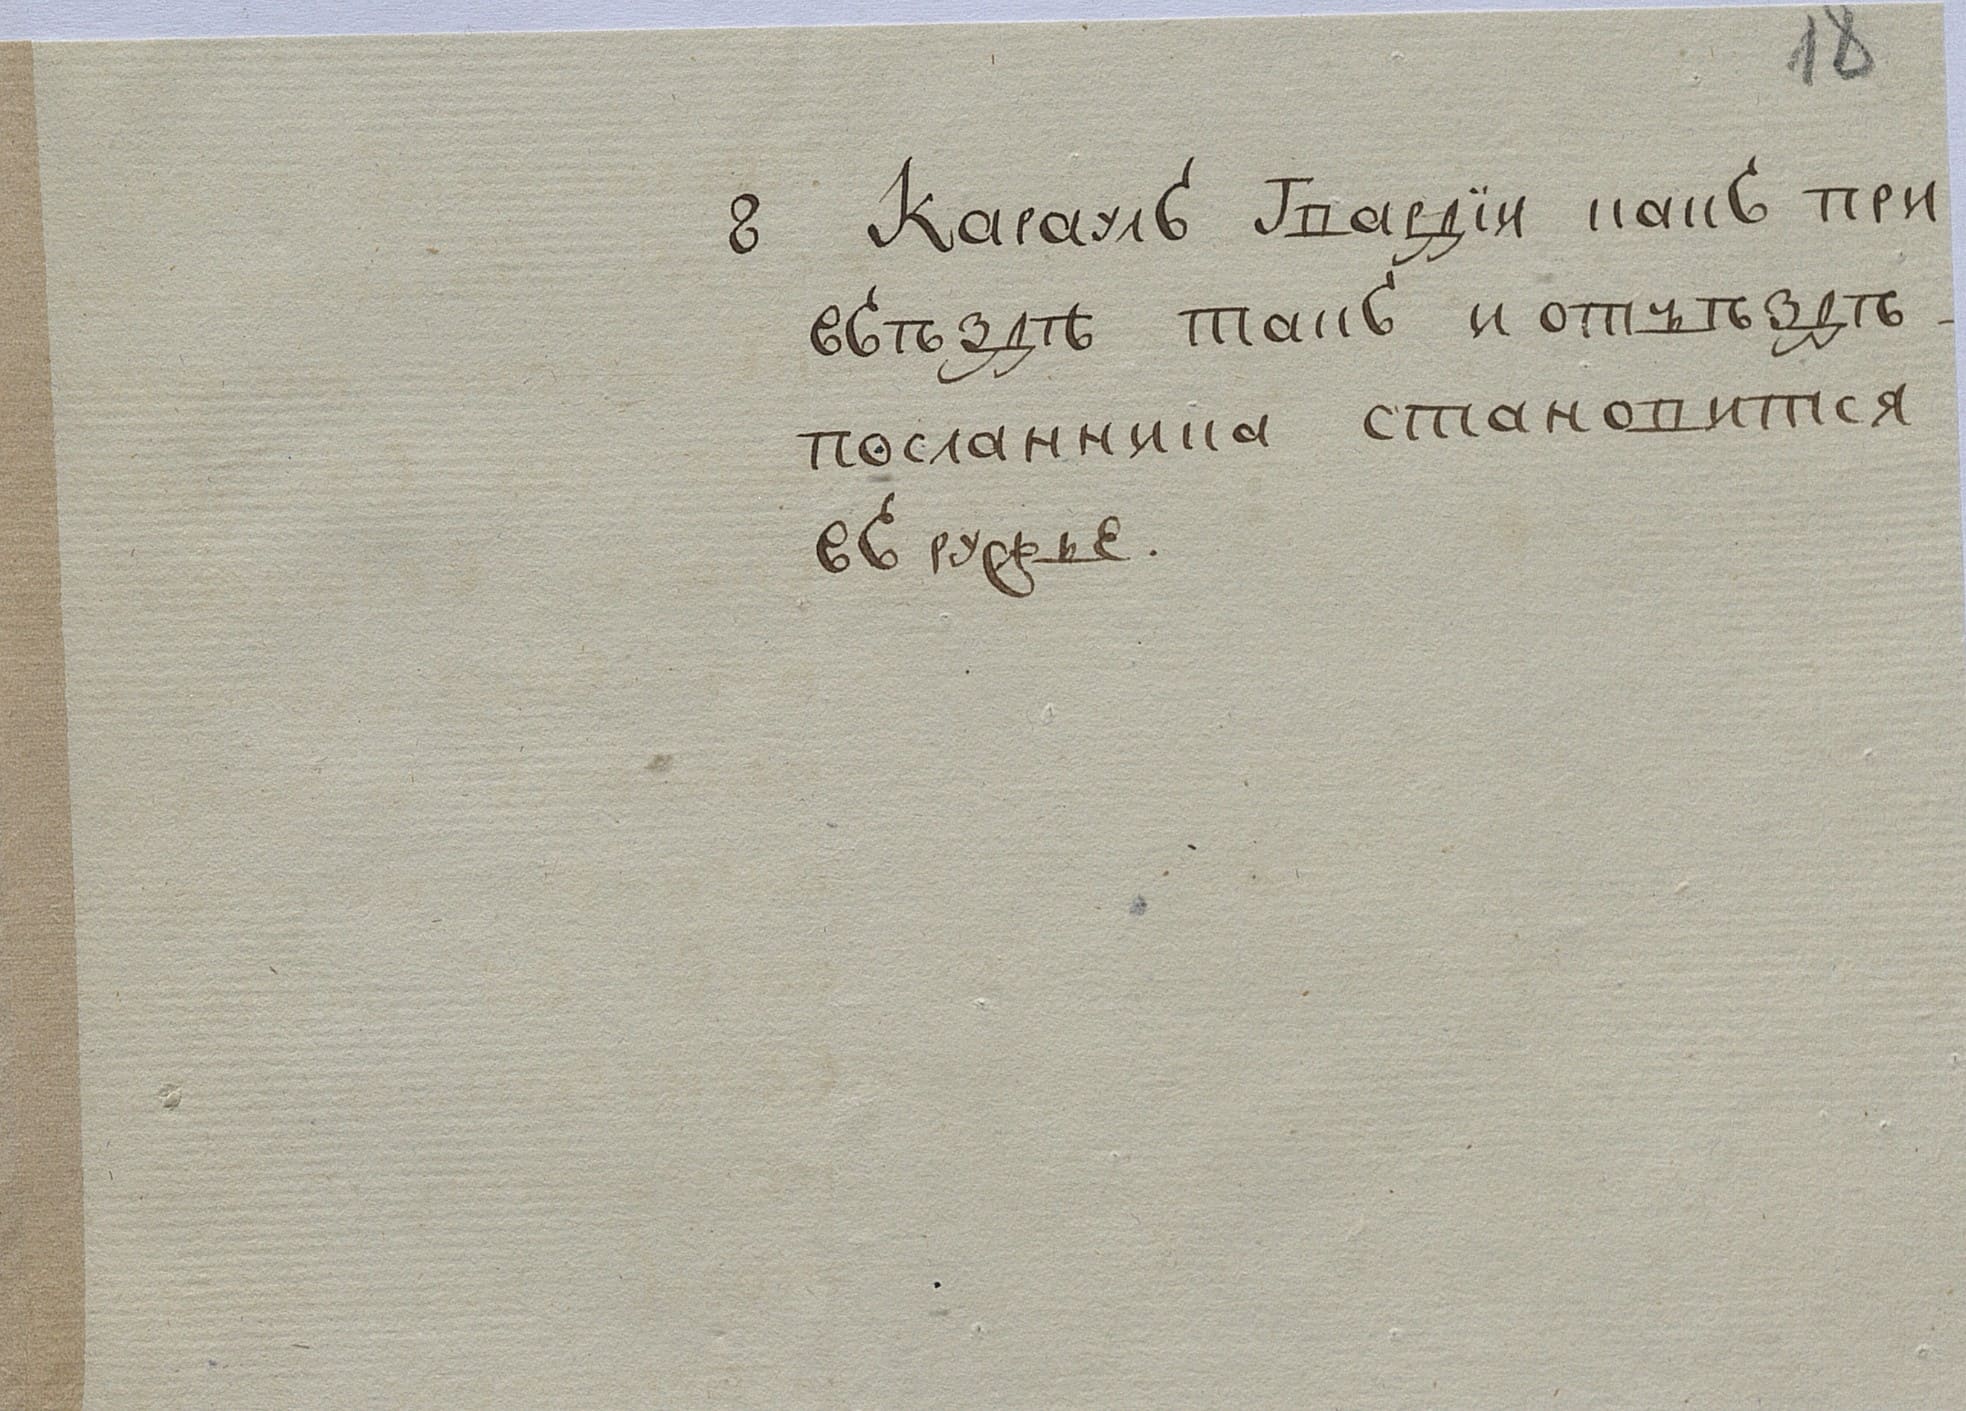 18
8 Караулъ Гвардїи какъ при
въѣздѣ такъ и отъѣздѣ
посланника становится
въ ружье.